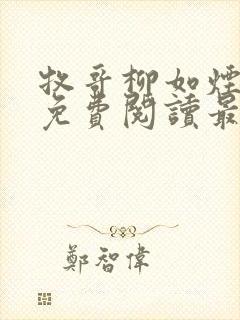 牧哥柳如煙
免費閱讀最
鄭智偉